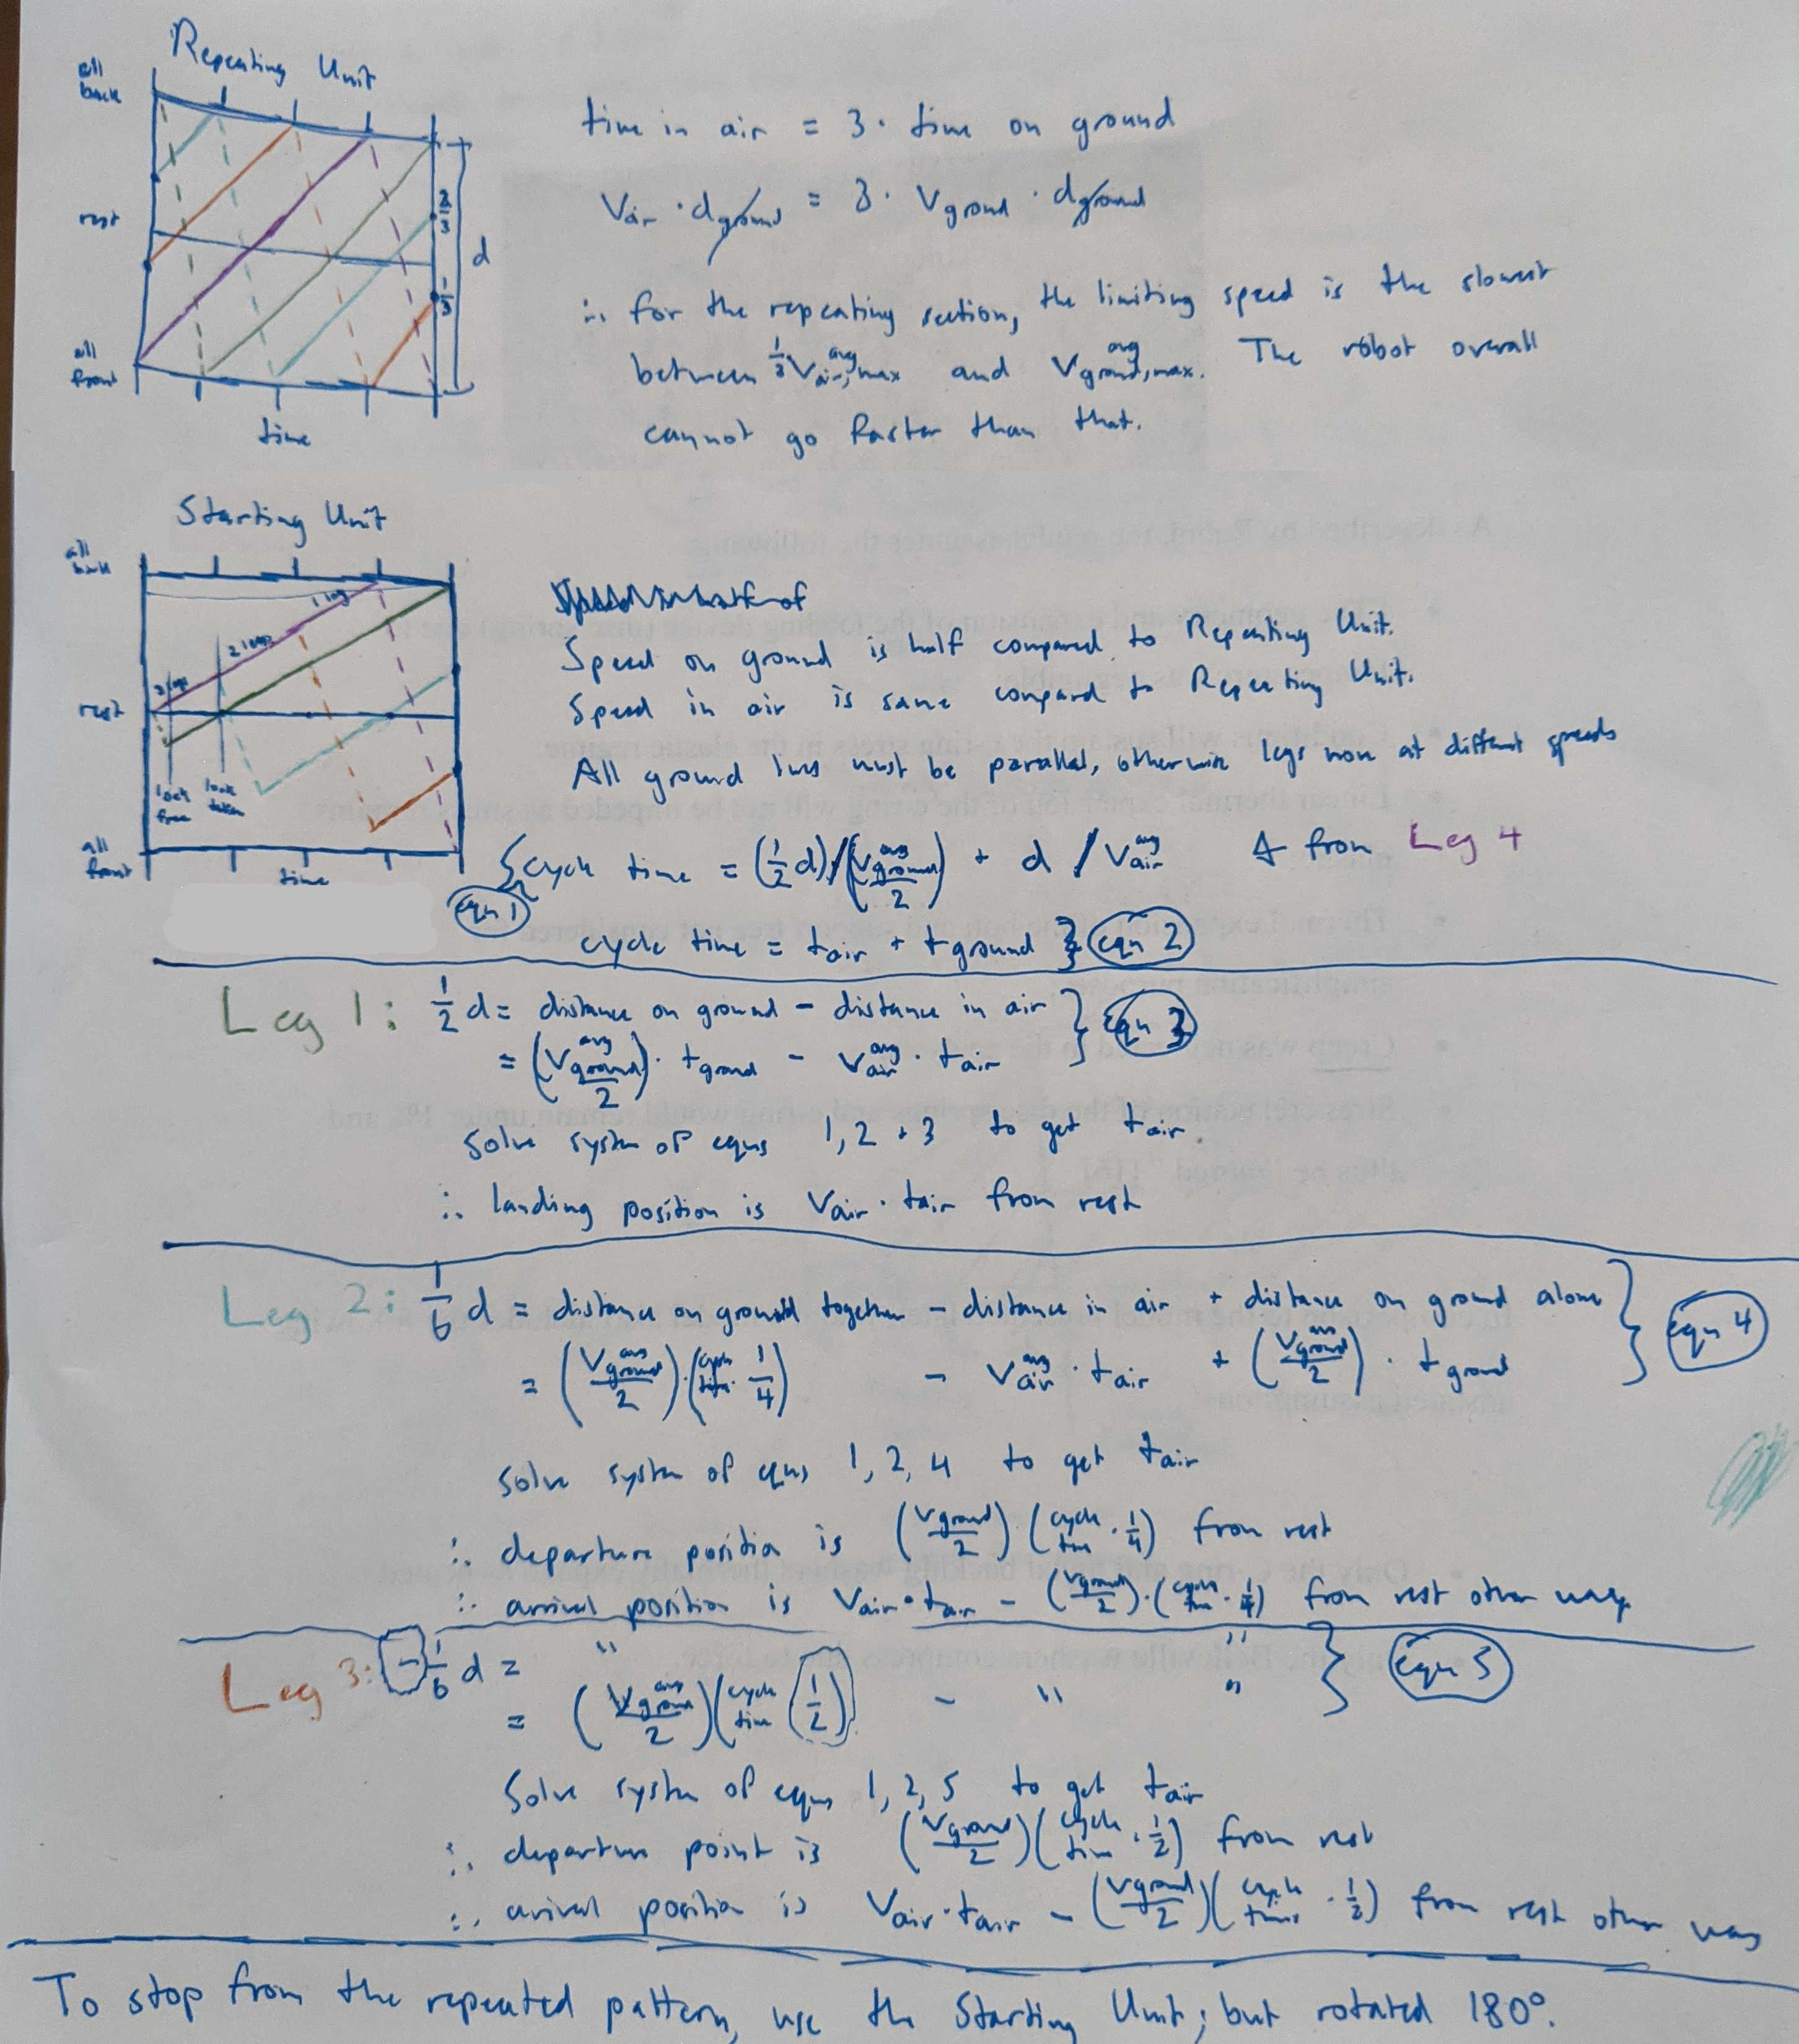 Repeating Unit
all back
rest
all front
time
2/3
1/3
d
time in air = 3 · time on ground
Vair · dground = 3 · Vground · dground
∴ for the repeating section, the limiting speed is the slowest
between 1/3 Vair,max avg and Vground,max avg. The robot overall
cannot go faster than that.
Starting Unit
all back
rest
all front
time
1 leg
2 legs
lock free
lock taken
Speed on ground is half compared to Repeating Unit.
Speed in air is same compared to Repeating Unit.
All ground lines must be parallel, otherwise legs move at different speeds
eqn 1 { cycle time = (1/2 d)/(Vground avg/2) + d / Vair avg from Leg 4
cycle time = tair + tground } eqn 2
Leg 1: 1/2 d = distance on ground - distance in air } eqn 3
= (Vground avg/2) · tground - Vair avg · tair
Solve system of eqns 1, 2 + 3 to get tair
∴ landing position is Vair · tair from rest
Leg 2: 1/6 d = distance on ground together - distance in air + distance on ground alone } eqn 4
= (Vground avg/2) · (cycle time · 1/4) - Vair avg · tair + (Vground avg/2) · tground
Solve system of eqns 1, 2, 4 to get tair
∴ departure position is (Vground/2) · (cycle time · 1/4) from rest
∴ arrival position is Vair · tair - (Vground/2) · (cycle time · 1/4) from rest other way
Leg 3: -1/6 d = " " } eqn 5
= (Vground avg/2)(cycle time (1/2)) - " "
Solve system of eqns 1, 2, 5 to get tair
∴ departure point is (Vground/2)(cycle time · 1/2) from rest
∴ arrival position is Vair · tair - (Vground/2)(cycle time · 1/2) from rest other way
To stop from the repeated pattern, use the Starting Unit, but rotated 180°.